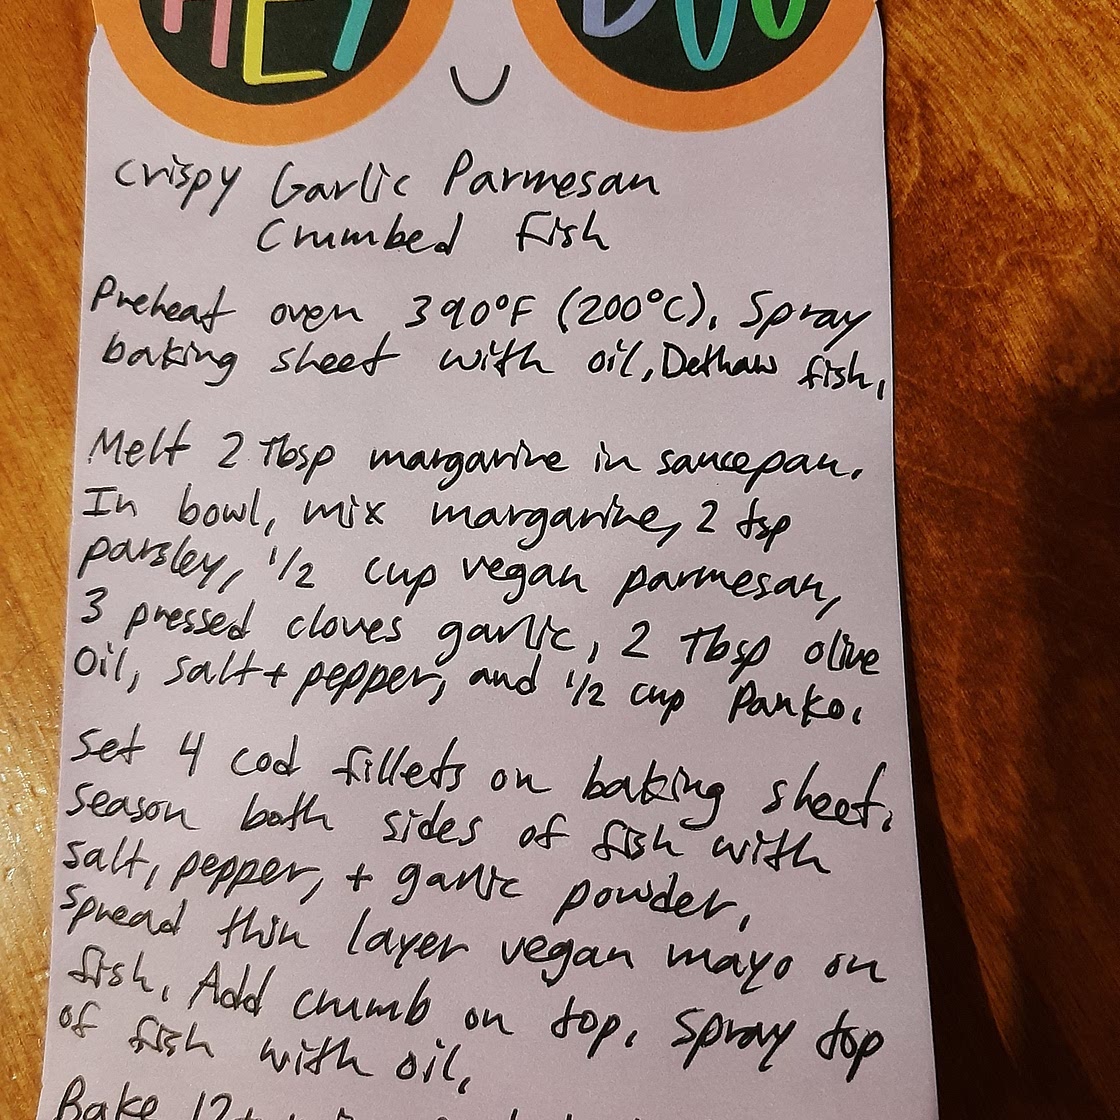 HEY
DUU
Crispy Garlic Parmesan
Crumbed Fish
Preheat oven 390°F (200°C). Spray
baking sheet with oil, Dethaw fish.
Melt 2 Tbsp margarine in saucepan.
In bowl, mix margarine, 2 tsp
parsley, 1/2 cup vegan parmesan,
3 pressed cloves garlic, 2 Tbsp olive
oil, salt + pepper, and 1/2 cup Panko.
Set 4 cod fillets on baking sheet.
Season both sides of fish with
salt, pepper, + garlic powder.
Spread thin layer vegan mayo on
fish. Add crumb on top. Spray top
of fish with oil.
Bake 12